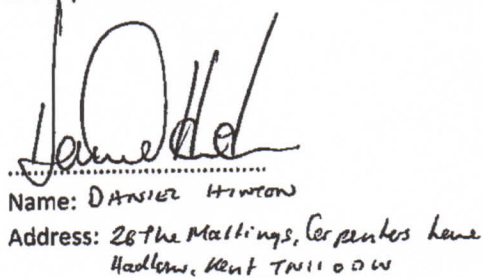 Name: DANIEL HINTON
Address: 28 The Maltings, Carpenters Lane
Hadlow, Kent TN11 0DW